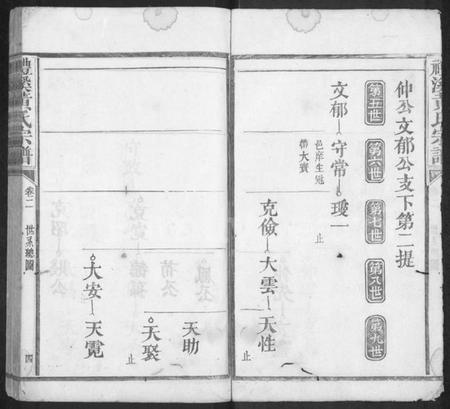 仲公文郁公支下第二提
第五世
第六世
第七世
第八世
第九世
文郁
守常
邑庠生冠
帶大賓
瑷一
止
克儉
大雲
天性
止
天助
天聚
止
大安
天霓
黃氏宗譜
卷二
世系總圖
四